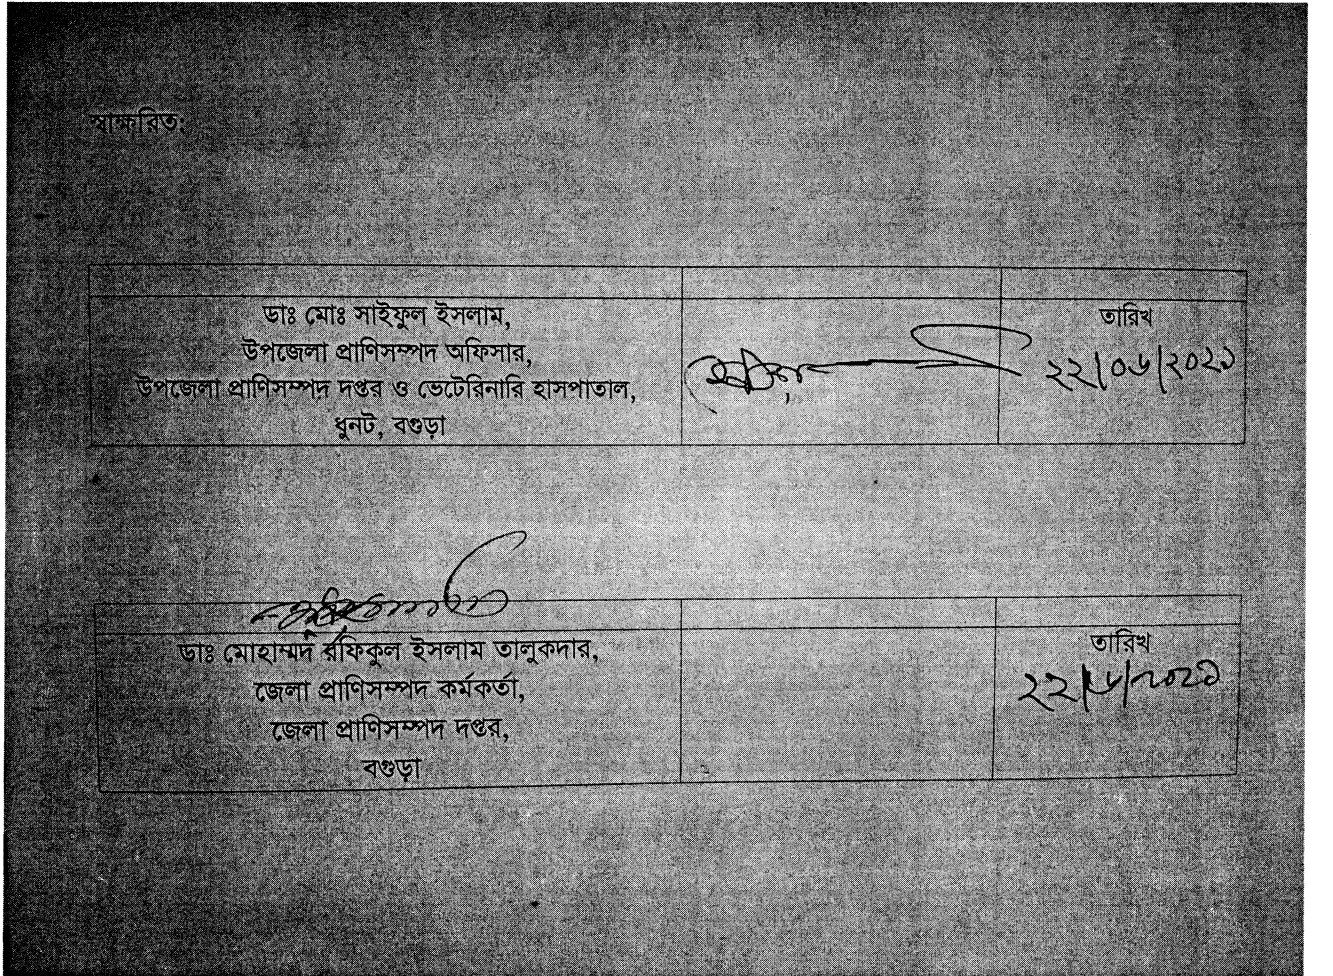 স্বাক্ষরিত:
ডাঃ মোঃ সাইফুল ইসলাম,
উপজেলা প্রাণিসম্পদ অফিসার,
উপজেলা প্রাণিসম্পদ দপ্তর ও ভেটেরিনারি হাসপাতাল,
ধুনট, বগুড়া
তারিখ
২২/০৬/২০২১
ডাঃ মোহাম্মদ রফিকুল ইসলাম তালুকদার,
জেলা প্রাণিসম্পদ কর্মকর্তা,
জেলা প্রাণিসম্পদ দপ্তর,
বগুড়া
তারিখ
২২/৬/২০২১